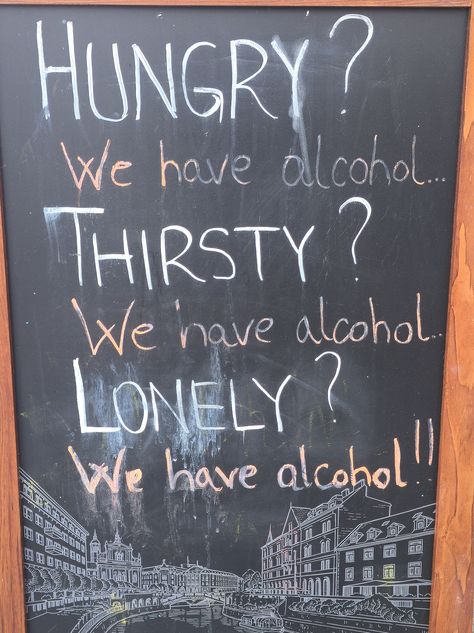 HUNGRY?
We have alcohol...
THIRSTY?
We have alcohol..
LONELY?
We have alcohol!!